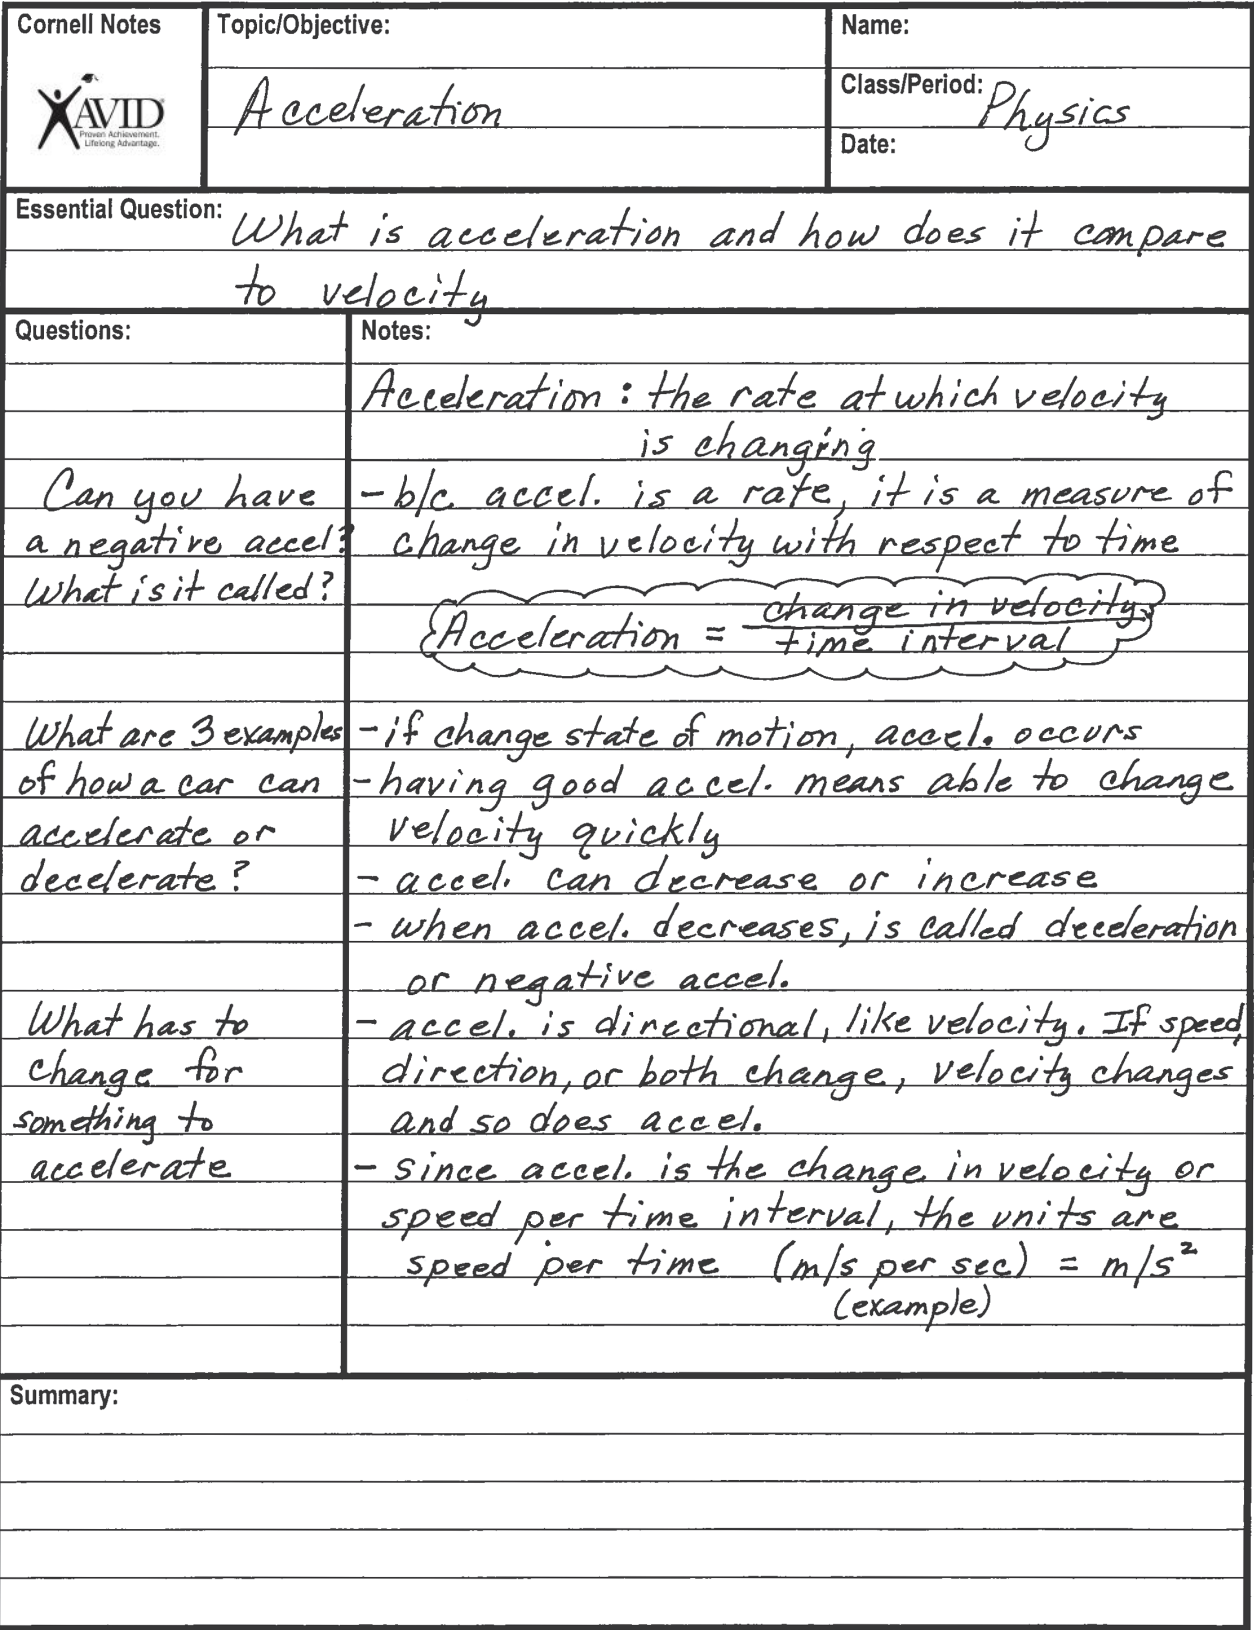 Cornell Notes
AVID
Proven Achievement.
Lifelong Advantage.
Topic/Objective:
Acceleration
Name:
Class/Period: Physics
Date:
Essential Question: What is acceleration and how does it compare
to velocity
Questions:
Can you have
a negative accel?
What is it called?
What are 3 examples
of how a car can
accelerate or
decelerate?
What has to
change for
something to
accelerate
Notes:
Acceleration : the rate at which velocity
is changing
- b/c. accel. is a rate, it is a measure of
change in velocity with respect to time
Acceleration = change in velocity
time interval
- if change state of motion, accel. occurs
- having good accel. means able to change
velocity quickly
- accel. can decrease or increase
- when accel. decreases, is called deceleration
or negative accel.
- accel. is directional, like velocity. If speed,
direction, or both change, velocity changes
and so does accel.
- since accel. is the change in velocity or
speed per time interval, the units are
speed per time (m/s per sec) = m/s²
(example)
Summary: